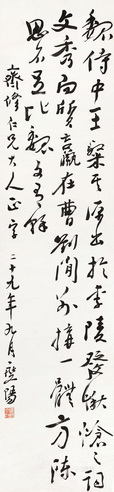 魏侍中王粲其源出於李陵發愀愴之詞
文秀而質羸在曹劉間別搆一體方陳
思不足比魏文有餘
仁兄大人正字 二十九年九月